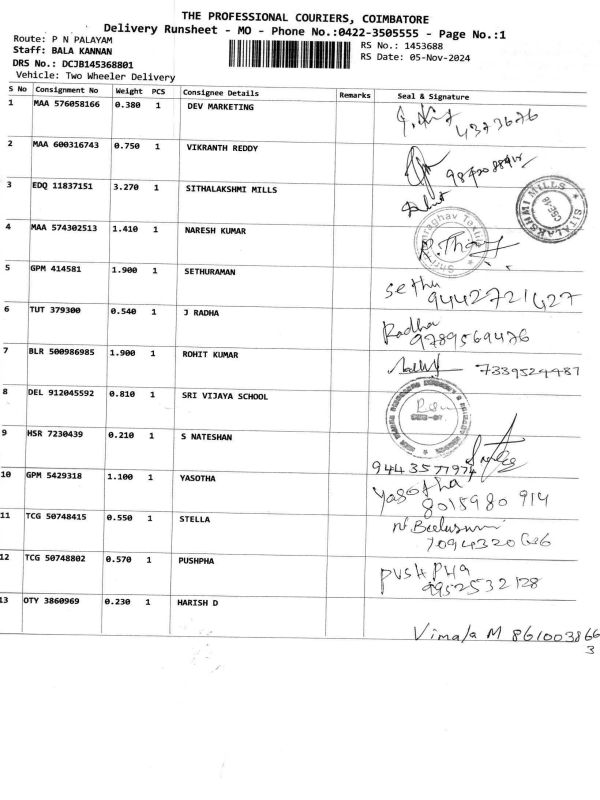 THE PROFESSIONAL COURIERS, COIMBATORE
Delivery Runsheet - MO - Phone No.:0422-3505555 - Page No.:1
Route: P N PALAYAM
RS No.: 1453688
Staff: BALA KANNAN
RS Date: 05-Nov-2024
DRS No.: DCJB145368801
Vehicle: Two Wheeler Delivery
S No Consignment No Weight PCS Consignee Details Remarks Seal & Signature
1 MAA 576058166 0.380 1 DEV MARKETING
4373676
2 MAA 600316743 0.750 1 VIKRANTH REDDY
3 EDQ 11837151 3.270 1 SITHALAKSHMI MILLS
SITALAKSHMI MILLS
4 MAA 574302513 1.410 1 NARESH KUMAR
5 GPM 414581 1.900 1 SETHURAMAN
sethu
9442721427
6 TUT 379300 0.540 1 J RADHA
Radha
9789569476
7 BLR 500986985 1.900 1 ROHIT KUMAR
7339524487
8 DEL 912045592 0.810 1 SRI VIJAYA SCHOOL
9 HSR 7230439 0.210 1 S NATESHAN
9443577974
10 GPM 5429318 1.100 1 YASOTHA
Yasotha
8015980 914
11 TCG 50748415 0.550 1 STELLA
7094320686
12 TCG 50748802 0.570 1 PUSHPHA
PUSHPHA
9952532128
13 OTY 3860969 0.230 1 HARISH D
Vimala M 861003866
3